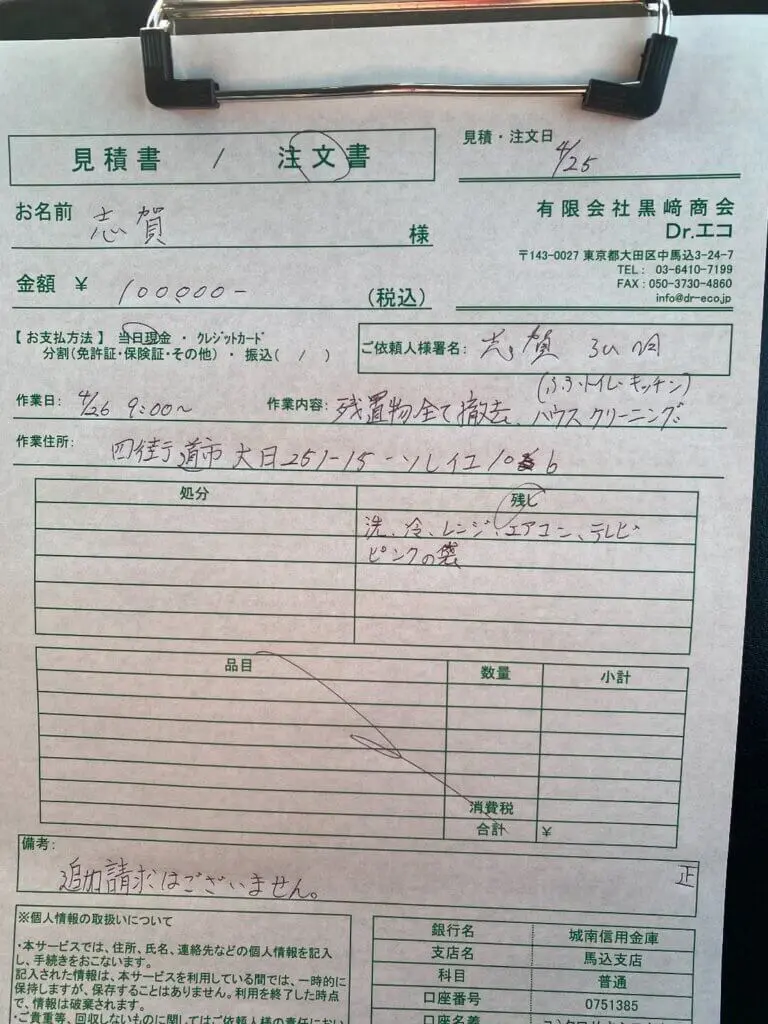 見積書 / 注文書
見積・注文日
4/25
お名前 志賀 様
有限会社黒﨑商会
Dr.エコ
〒143-0027 東京都大田区中馬込3-24-7
TEL： 03-6410-7199
FAX：050-3730-4860
info@dr-eco.jp
金額 ¥ 100000- (税込)
【お支払方法】 当日現金 ・ クレジットカード
分割(免許証・保険証・その他) ・ 振込( / )
ご依頼人様署名: 志賀
(ふろ・トイレ・キッチン)
作業日: 4/26 9:00〜 作業内容: 残置物全て撤去、ハウスクリーニング
作業住所: 四街道市大日251-15-ソレイユ106
処分 残し
洗、冷、レンジ、エアコン、テレビ
ピンクの袋
品目 数量 小計
消費税
合計 ¥
備考:
追加請求はございません。
正
※個人情報の取扱いについて
・本サービスでは、住所、氏名、連絡先などの個人情報を記入
し、手続きをおこないます。
記入された情報は、本サービスを利用している間では、一時的に
保持しますが、保存することはありません。利用を終了した時点
で、情報は破棄されます。
・ご貴重等、回収しないものに関してはご依頼人様の責任におい
銀行名 城南信用金庫
支店名 馬込支店
科目 普通
口座番号 0751385
口座名義